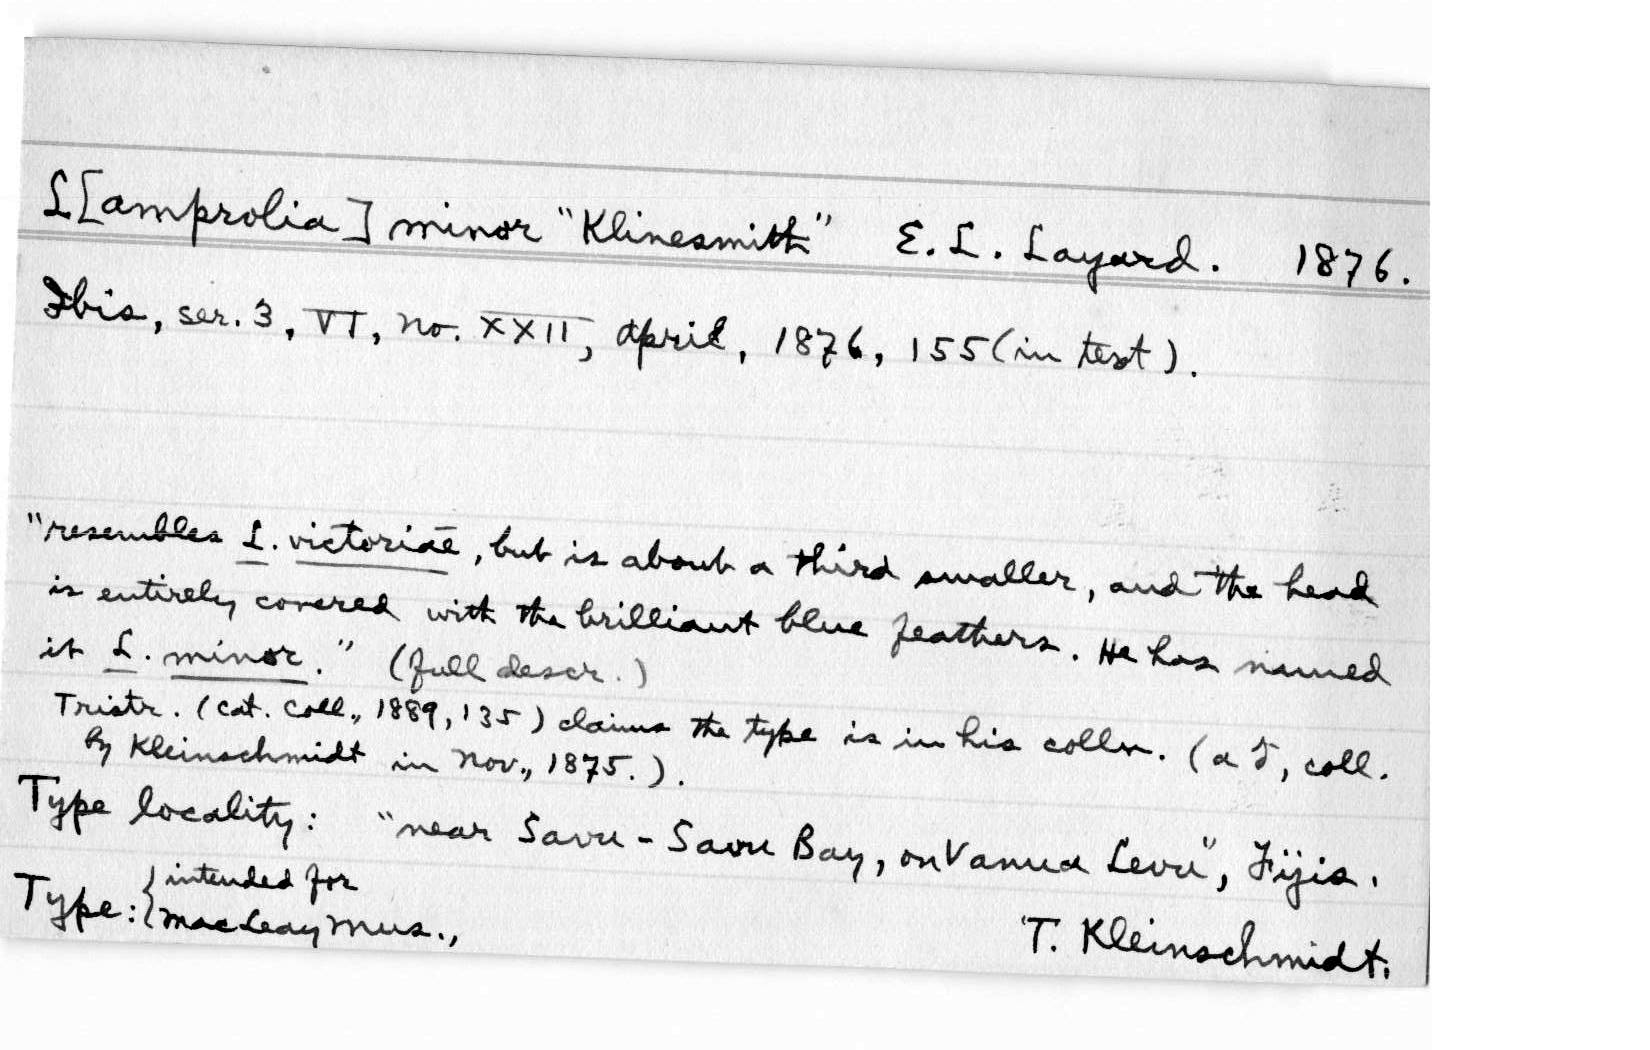 L[amprolia] minor "Klinesmith" E. L. Layard. 1876.
Ibis, ser. 3, VI, no. XXII, April, 1876, 155 (in text).
"resembles L. victoriae, but is about a third smaller, and the head
is entirely covered with the brilliant blue feathers. He has named
it L. minor." (full descr.)
Tristr. (Cat. Coll., 1889, 135) claims the type is in his colln. (a ♂, coll.
by Kleinschmidt in Nov., 1875.).
Type locality: "near Savu-Savu Bay, on Vanua Levu", Fijis.
Type: { intended for
MacLeay Mus., T. Kleinschmidt.